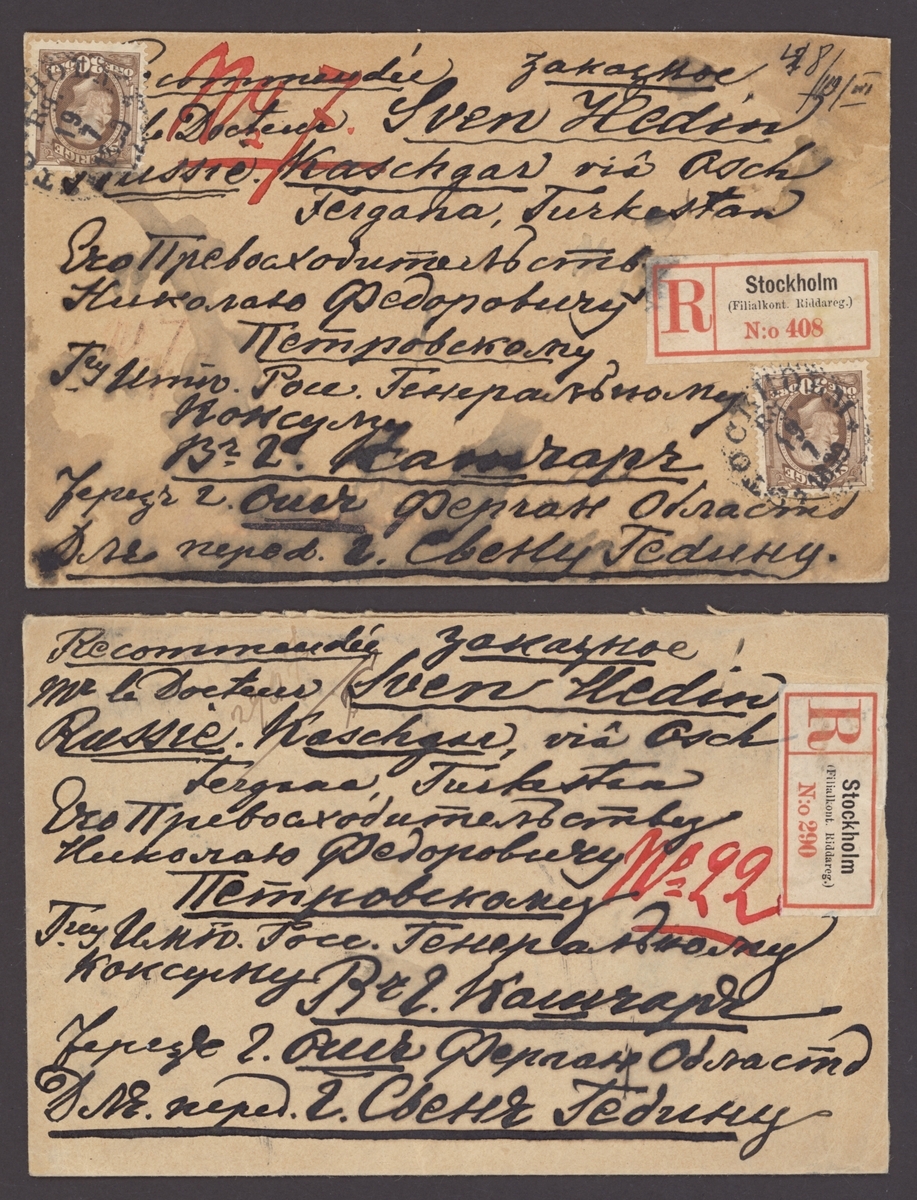 Recommendée заказное 
№ 7.
le Docteur Sven Hedin
Russie. Kaschgar viâ Osch
Fergana, Turkestan
Его Превосходительств
Николаю Федоровичу
Петровскому
Гну Имп. Росс. Генеральному
Консулу
Въ г. Кашгаръ
Черезъ г. Ошъ Ферган Область
Для перед. г. Свену Гедину.
R
Stockholm
(Filialkont. Riddareg.)
N:o 408
Recommendée заказное
Mr le Docteur Sven Hedin
Russie. Kaschgar, viâ Osch
Fergana, Turkestan
Его Превосходительству
Николаю Федоровичу
№ 22
Петровскому
Гну Имп. Росс. Генеральному
Въ г. Кашгаръ
Черезъ г. Ошъ Ферган Область
Для перед. г. Свенъ Гедину
R
Stockholm
(Filialkont. Riddareg.)
N:o 290